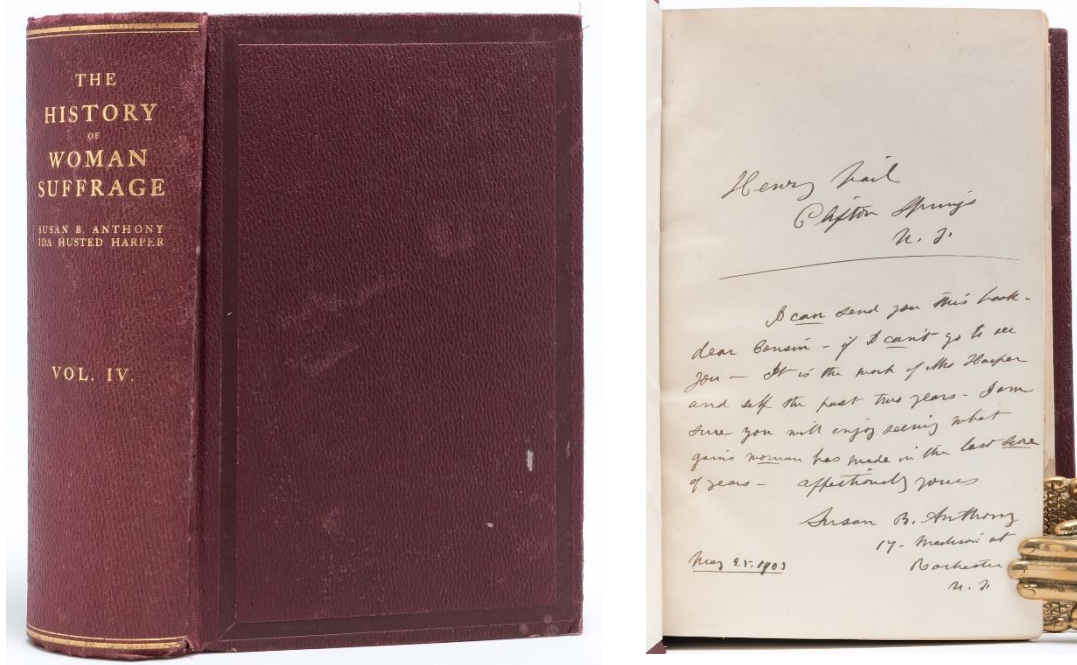 THE
HISTORY
OF
WOMAN
SUFFRAGE
SUSAN B. ANTHONY
IDA HUSTED HARPER
VOL. IV.
Henry Vail
Clifton Springs
N. Y.
I can send you this book -
dear Cousin - if I can't go to see
you - It is the work of Mrs Harper
and self the past two years - I am
sure you will enjoy seeing what
gains woman has made in the last score
of years - affectionately yours
Susan B. Anthony
17 - Madison st
Rochester
N. Y.
May 25. 1903